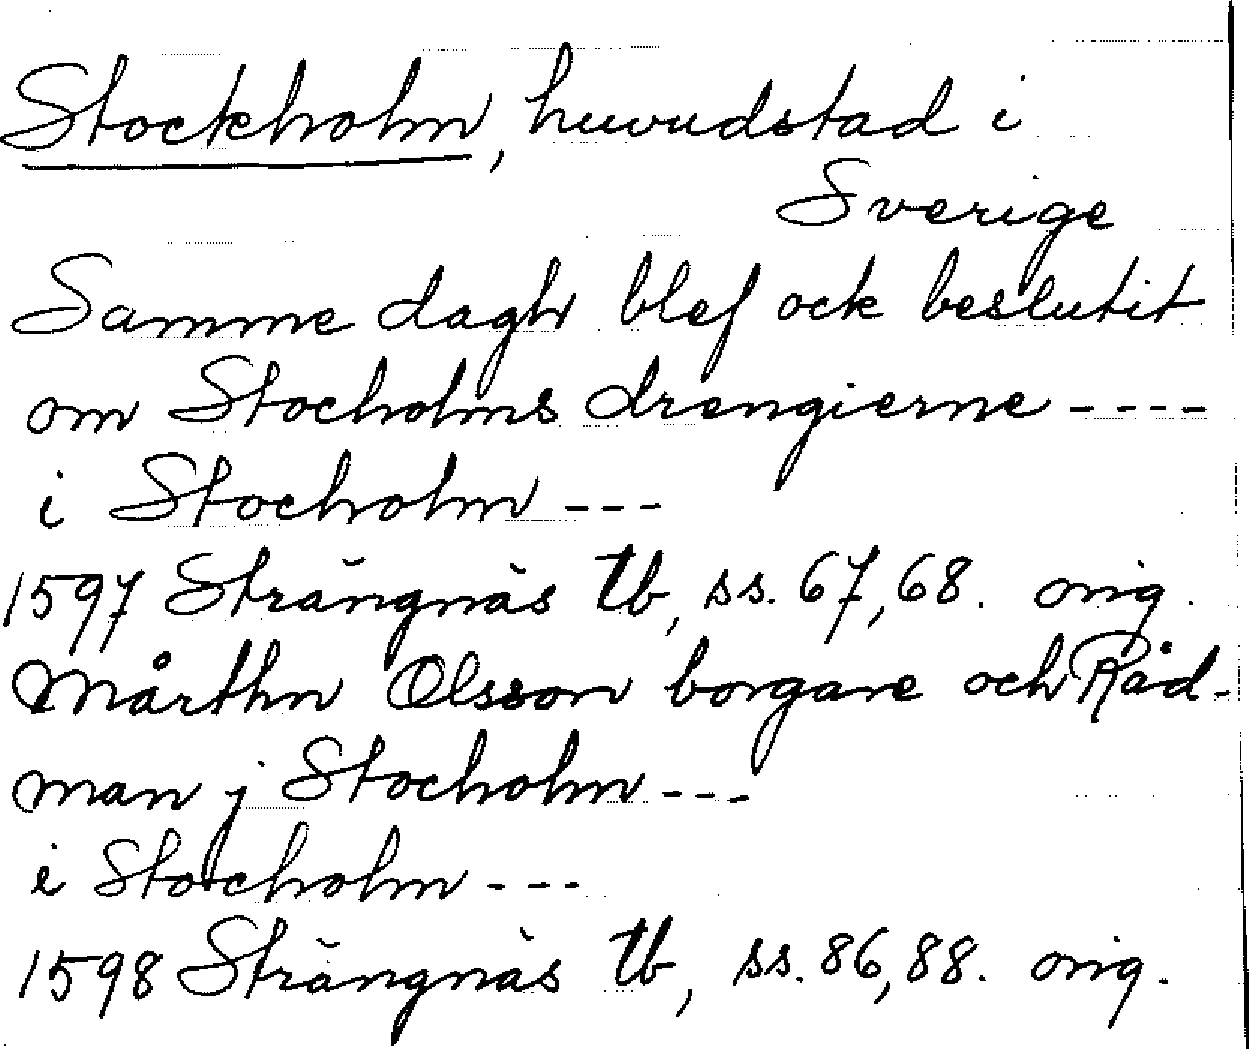 Stockholm, huvudstad i
Sverige
Samme dagh blef ock beslutit
om Stocholms drengierne ----
i Stocholm ---
1597 Strängnäs tb, ss. 67, 68. orig.
Mårthn Olsson borgare och Råd-
man j Stocholm ---
i Stocholm ---
1598 Strängnäs tb, ss. 86, 88. orig.